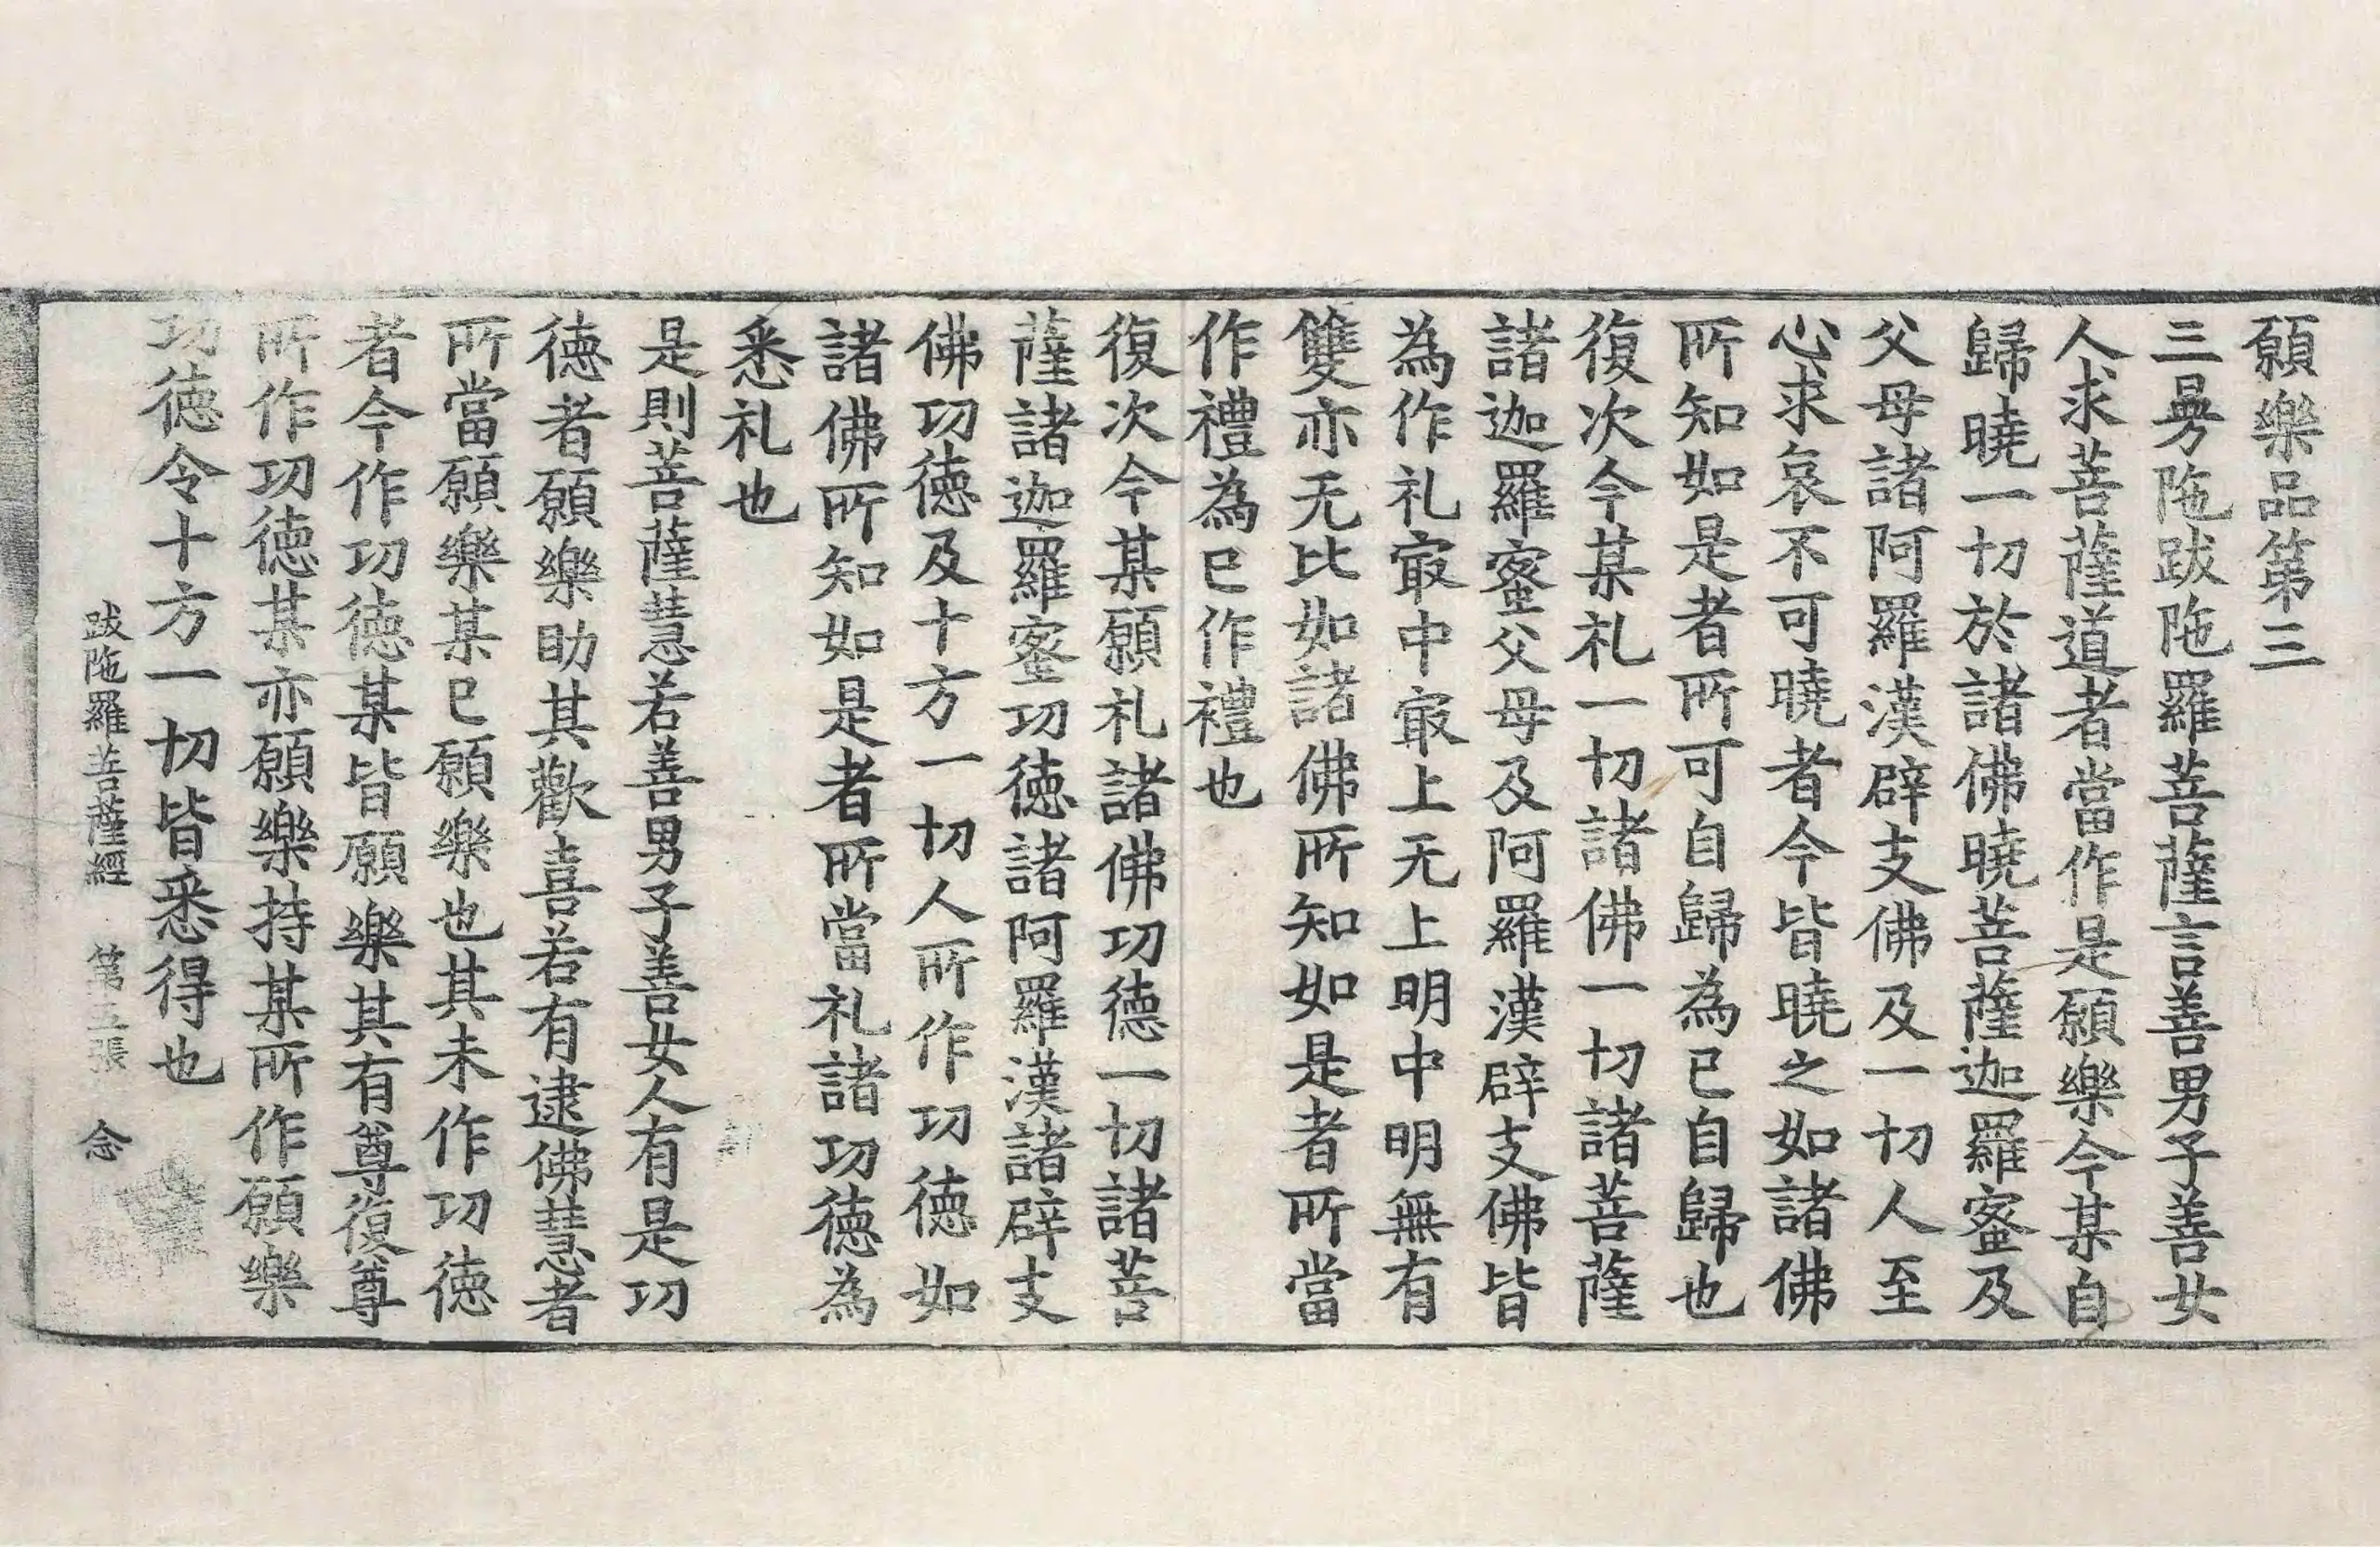 願樂品第三
三曼陁跋陁羅菩薩言善男子善女
人求菩薩道者當作是願樂今某自
歸曉一切於諸佛曉菩薩迦羅蜜及
父母諸阿羅漢辟支佛及一切人至
心求哀不可曉者今皆曉之如諸佛
所知如是者所可自歸為已自歸也
復次今某礼一切諸佛一切諸菩薩
諸迦羅蜜父母及阿羅漢辟支佛皆
為作礼㝡中㝡上无上明中明無有
雙亦无比如諸佛所知如是者所當
作禮為已作禮也
復次今某願礼諸佛功德一切諸菩
薩諸迦羅蜜功德諸阿羅漢諸辟支
佛功德及十方一切人所作功德如
諸佛所知如是者所當礼諸功德為
悉礼也
是則菩薩慧若善男子善女人有是功
德者願樂助其歡喜若有逮佛慧者
所當願樂某已願樂也其未作功德
者今作功德某皆願樂其有尊復尊
所作功德某亦願樂持某所作願樂
功德令十方一切皆悉得也
跋陁羅菩薩經 第五張 念